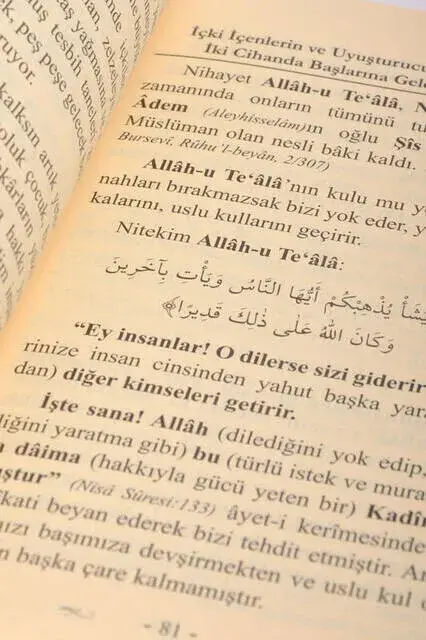 içki
taş yağmasına
muş tesbih tanel
nek, peş peşe gelecek
uruyor.
kalksın artık
oluk çocuk
kârların
hakkı
İçki İçenlerin ve Uyuşturucu
İki Cihanda Başlarına Gele
Nihayet Allâh-u Te‘âlâ, N
zamanında onların tümünü tu
Âdem (Aleyhisselâm)ın oğlu Şîs
Müslüman olan nesli bâki kaldı.
Bursevî, Rûhu’l-beyân, 2/307)
Allâh-u Te‘âlâ’nın kulu mu y
nahları bırakmazsak bizi yok eder, y
kalarını, uslu kullarını geçirir.
Nitekim Allâh-u Te‘âlâ:
يَشَأْ يُذْهِبْكُمْ أَيُّهَا النَّاسُ وَيَأْتِ بِآخَرِينَ
وَكَانَ اللهُ عَلَى ذَلِكَ قَدِيرًا﴾
“Ey insanlar! O dilerse sizi giderir
rinize insan cinsinden yahut başka yara
dan) diğer kimseleri getirir.
İşte sana! Allâh (dilediğini yok edip,
diğini yaratma gibi) bu (türlü istek ve mura
a dâima (hakkıyla gücü yeten bir) Kadîr
uştur” (Nisâ Sûresi:133) âyet-i kerîmesinde
kati beyan ederek bizi tehdit etmiştir. Ar
mızı başımıza devşirmekten ve uslu kul o
n başka çare kalmamıştır.
- 81 -